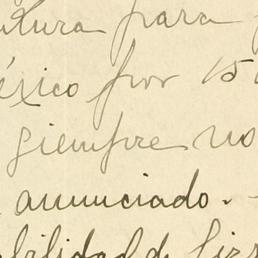 ultura para
éxico por 15
siempre no
anunciado. -
bilidad de